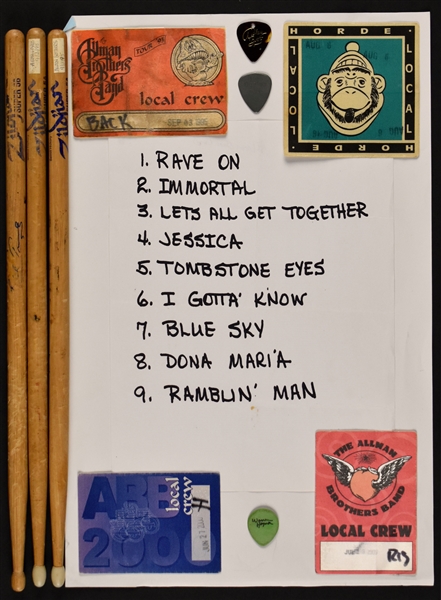 Allman
Brothers
Band
TOUR '95
local crew
BACK
SEP
HORDE
LOCAL
LOCAL
HORDE
AUG
1. RAVE ON
2. IMMORTAL
3. LETS ALL GET TOGETHER
4. JESSICA
5. TOMBSTONE EYES
6. I GOTTA' KNOW
7. BLUE SKY
8. DONA MARI'A
9. RAMBLIN' MAN
ABB
local
crew
H
2000
JUN 27
THE ALLMAN
BROTHERS BAND
LOCAL CREW